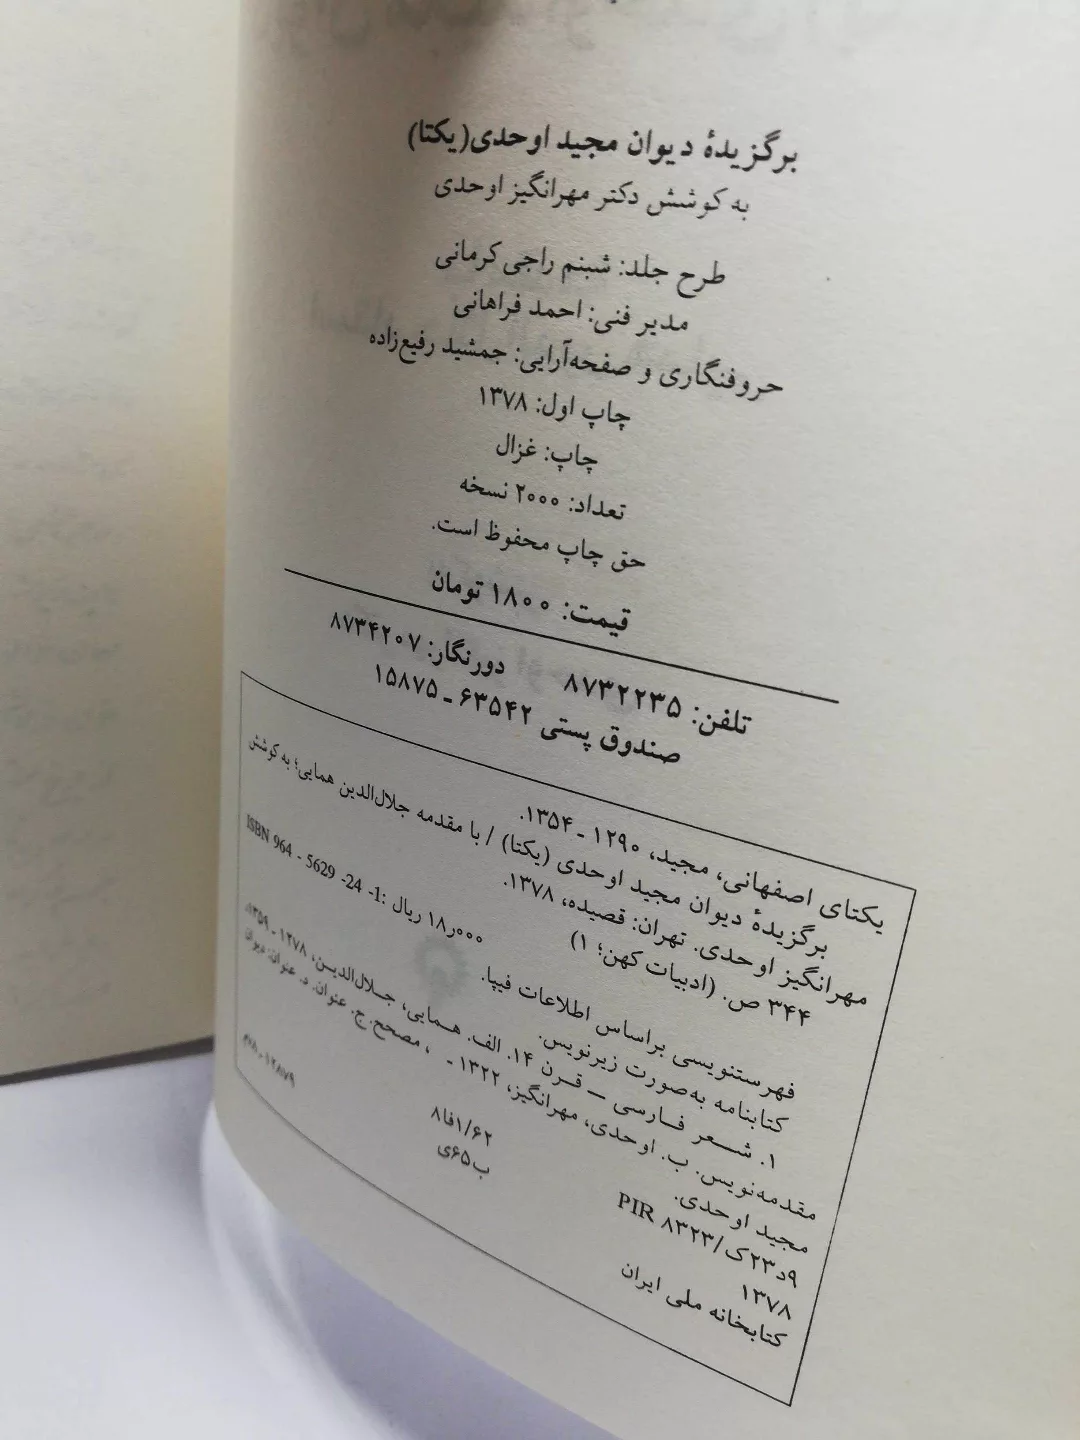 برگزیدهٔ دیوان مجید اوحدی(یکتا)
به کوشش دکتر مهرانگیز اوحدی
طرح جلد: شبنم راجی‌کرمانی
مدیر فنی: احمد فراهانی
حروفنگاری و صفحه‌آرایی: جمشید رفیع‌زاده
چاپ اول: ۱۳۷۸
چاپ: غزال
تعداد: ۲۰۰۰ نسخه
حق چاپ محفوظ است.
قیمت: ۱۸۰۰ تومان
تلفن: ۸۷۳۲۲۳۵ دورنگار: ۸۷۳۴۲۰۷
صندوق پستی ۶۳۵۴۲ ـ ۱۵۸۷۵
یکتای اصفهانی، مجید، ۱۲۹۰ ـ ۱۳۵۴.
برگزیدهٔ دیوان مجید اوحدی (یکتا) / با مقدمه جلال‌الدین همایی؛ به کوشش
مهرانگیز اوحدی. تهران: قصیده، ۱۳۷۸.
۳۴۴ ص. (ادبیات کهن؛ ۱)
۱۸٫۰۰۰ ریال :ISBN 964 - 5629 -24 -1
فهرستنویسی براساس اطلاعات فیپا.
کتابنامه به‌صورت زیرنویس.
۱. شعر فارسی ـــ قرن ۱۴. الف. همایی، جلال‌الدین، ۱۲۷۸ ـ ۱۳۵۹،
مقدمه‌نویس. ب. اوحدی، مهرانگیز، ۱۳۲۲ ـ ، مصحح. ج. عنوان. د. عنوان: دیوان
مجید اوحدی.
۸فا۱/۶۲
ب۶۵ی
۹د۲۳ک/ PIR ۸۳۲۳
۱۳۷۸
کتابخانه ملی ایران